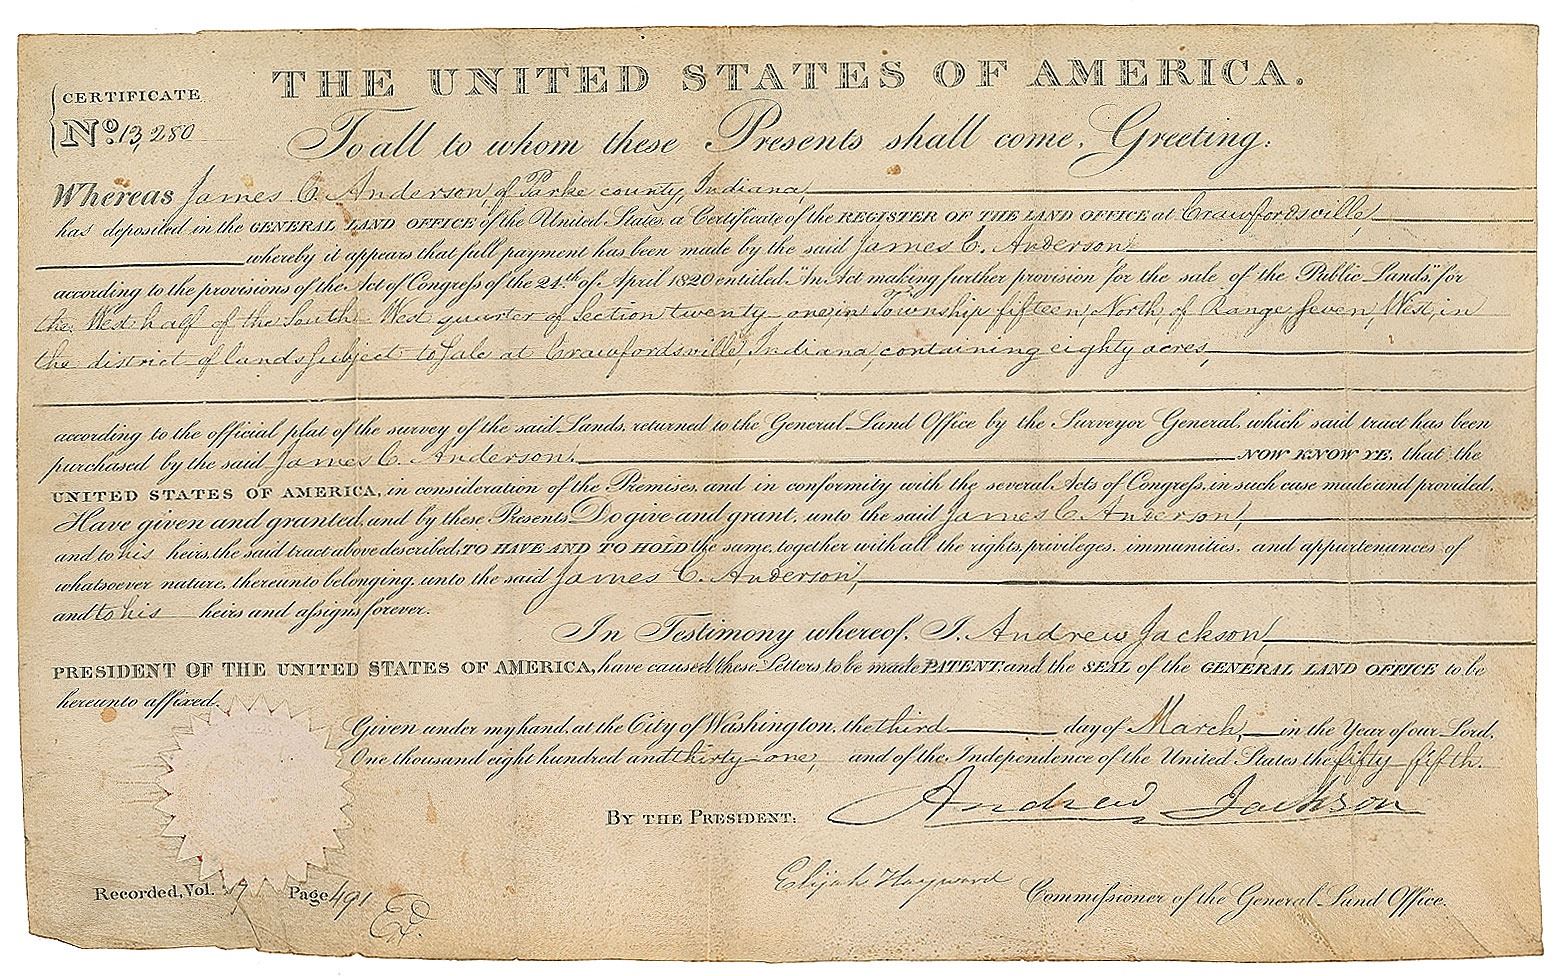 THE UNITED STATES OF AMERICA.
CERTIFICATE
No. 13,280
To all to whom these Presents shall come, Greeting:
Whereas James C. Anderson, of Parke county, Indiana,
has deposited in the GENERAL LAND OFFICE of the United States, a Certificate of the REGISTER OF THE LAND OFFICE at Crawfordsville,
whereby it appears that full payment has been made by the said James C. Anderson,
according to the provisions of the Act of Congress of the 24th of April 1820 entitled "An Act making further provision for the sale of the Public Lands," for
the West half of the South West quarter of Section twenty-one, in Township fifteen, North, of Range, Seven, West, in
the district of lands subject to sale at Crawfordsville, Indiana, containing eighty acres,
according to the official plat of the survey of the said Lands, returned to the General Land Office by the Surveyor General, which said tract has been
purchased by the said James C. Anderson. NOW KNOW YE, that the
UNITED STATES OF AMERICA, in consideration of the Premises, and in conformity with the several Acts of Congress, in such case made and provided,
Have given and granted, and by these Presents Do give and grant, unto the said James C. Anderson,
and to his heirs, the said tract above described, TO HAVE AND TO HOLD the same, together with all the rights, privileges, immunities, and appurtenances of
whatsoever nature, thereunto belonging, unto the said James C. Anderson,
and to his heirs and assigns forever.
In Testimony whereof, I, Andrew Jackson,
PRESIDENT OF THE UNITED STATES OF AMERICA, have caused these Letters to be made PATENT, and the SEAL of the GENERAL LAND OFFICE to be
hereunto affixed.
Given under my hand, at the City of Washington, the third day of March, in the Year of our Lord,
One thousand eight hundred and thirty-one, and of the Independence of the United States the fifty-fifth.
BY THE PRESIDENT: Andrew Jackson
Elijah Hayward Commissioner of the General Land Office.
Recorded, Vol. Page 491
Ex.